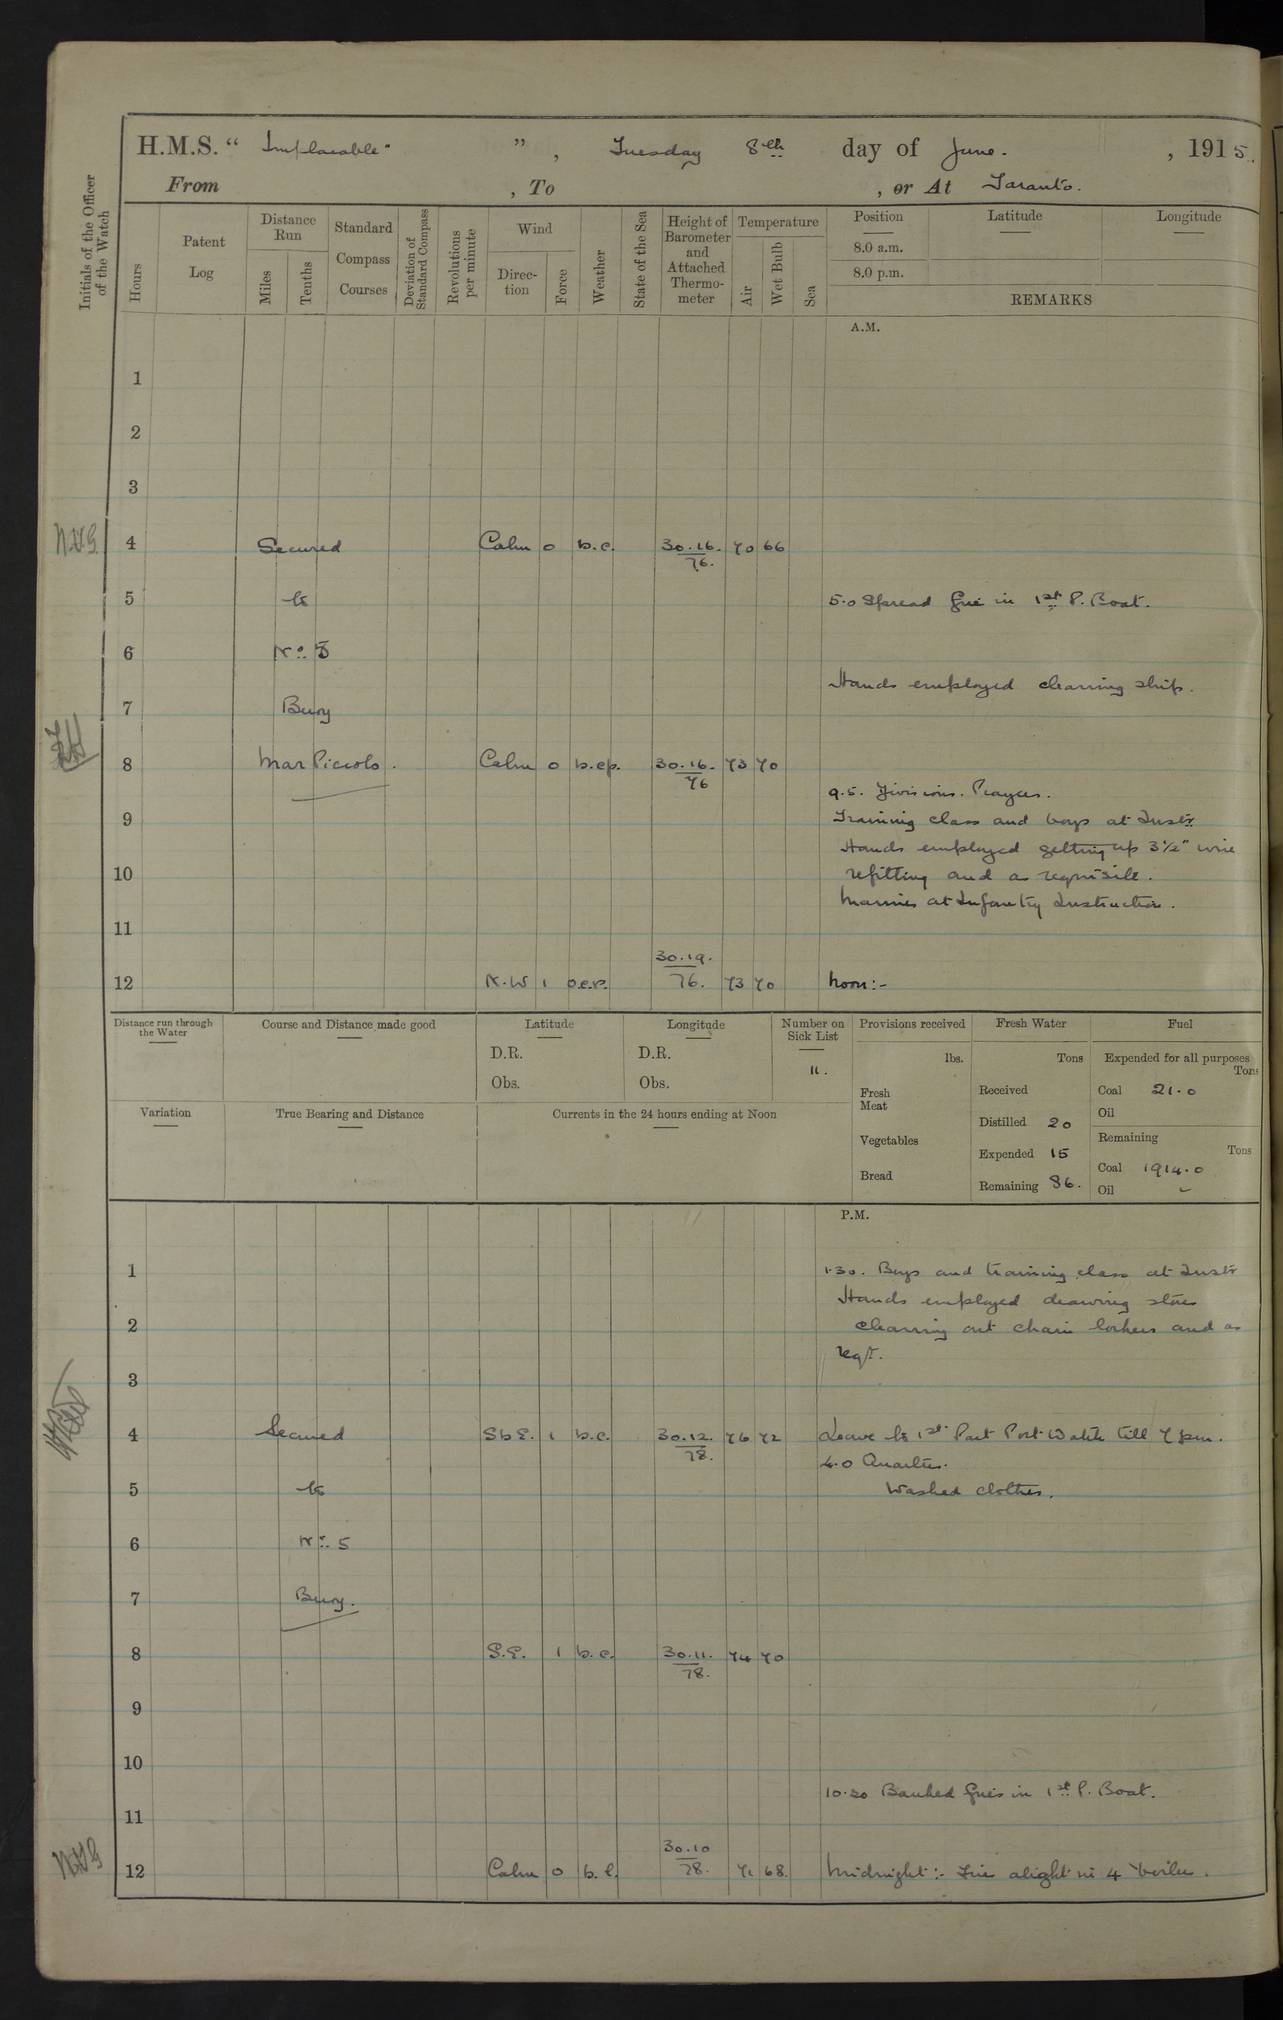 H.M.S. " Implacable " , Tuesday 8th day of June. , 1915.
From , To , or At Taranto.
Initials of the Officer of the Watch
Hours
Patent Log
Distance Run
Miles
Tenths
Standard Compass Courses
Deviation of Standard Compass
Revolutions per minute
Wind
Direc-tion
Force
Weather
State of the Sea
Height of Barometer and Attached Thermo-meter
Temperature
Air
Wet Bulb
Sea
Position
8.0 a.m.
8.0 p.m.
Latitude
Longitude
REMARKS
A.M.
1
2
3
4 Secured Calm 0 b.c. 30.16. 76. 70 66
5 to 5.0 Spread fire in 1st P. Boat.
6 No. 5
Hands employed cleaning ship.
7 Buoy
8 Mar Piccolo. Calm 0 b.cp. 30.16. 76 73 70
9.5. Divisions. Prayers.
9 Training class and boys at Instr.
Hands employed getting up 3½" wire
10 refitting and as requisite.
Marines at Infantry Instruction.
11
12 N.W 1 o.c.p. 30.19. 76. 73 70 Noon:-
Distance run through the Water
Course and Distance made good
Latitude
D.R.
Obs.
Longitude
D.R.
Obs.
Number on Sick List
11.
Provisions received
lbs.
Fresh Meat
Vegetables
Bread
Fresh Water
Tons
Received
Distilled 20
Expended 15
Remaining 86.
Fuel
Expended for all purposes
Tons
Coal 21.0
Oil
Remaining
Tons
Coal 1914.0
Oil -
Variation
True Bearing and Distance
Currents in the 24 hours ending at Noon
P.M.
1 1.30. Boys and training class at Instr
Hands employed drawing stores
2 cleaning out chain lockers and as
reqt.
3
4 Secured SbE. 1 b.c. 30.12. 78. 76 72 Leave to 1st Part Port Watch till 7 pm.
4.0 Quarters.
5 to Washed clothes.
6 No. 5
7 Buoy.
8 S.E. 1 b.c. 30.11. 78. 74 70
9
10
10.30 Banked fires in 1st P. Boat.
11
12 Calm 0 b.c. 30.10 78. 71 68. Midnight:- Fire alight in 4 boiler.